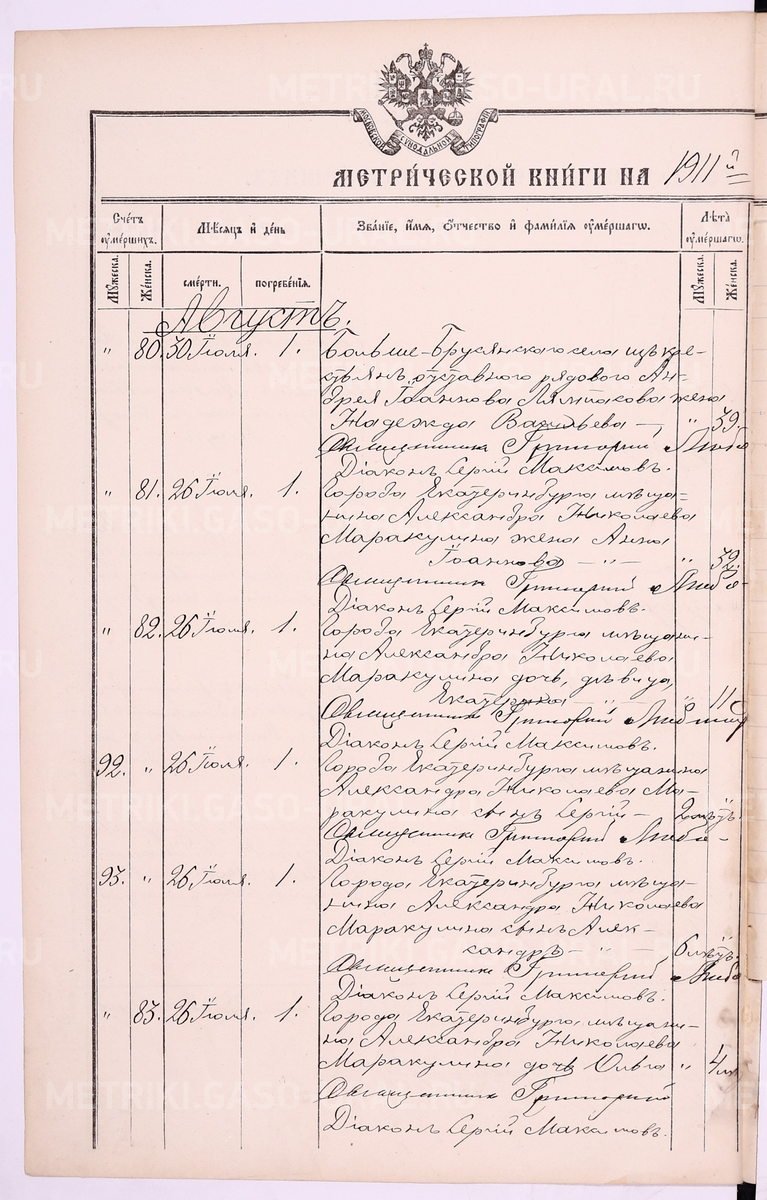 МОСКОВСКОЙ СѴНОДАЛЬНОЙ ТИПОГРАФІИ
МЕТРИ́ЧЕСКОЙ КНИ́ГИ НА 1911й
Сче́тъ ᲂу҆ме́ршихъ.
Мѣ́сяцъ и҆ де́нь
Зва́нїе, и҆́мя, ѻ҆́тчество и҆ фами́лїя ᲂу҆ме́ршагѡ.
Лѣ́та ᲂу҆ме́ршагѡ.
Мꙋ́жеска.
Же́нска.
сме́рти.
погребе́нїя.
Мꙋ́жеска.
Же́нска.
Августъ.
" 80. 30 Іюля. 1. Больше-Брусянскаго села изъ кре-
стьянъ, отставного рядового Ан-
дрея Іоаннова жена
Надежда Васильева — " 39.
Священникъ Григорій
Діаконъ Сергій Максимовъ.
" 81. 26 Іюля. 1. Города Екатеринбурга мѣща-
нина Александра Николаева
Маракулина жена Анна
Іоаннова — " — " 32.
Священникъ Григорій
Діаконъ Сергій Максимовъ.
" 82. 26 Іюля. 1. Города Екатеринбурга мѣщани-
на Александра Николаева
Маракулина дочь, дѣвица,
Екатерина — " — " 11
Священникъ Григорій
Діаконъ Сергій Максимовъ.
92. " 26 Іюля. 1. Города Екатеринбурга мѣщанина
Александра Николаева Ма-
ракулина сынъ Сергій — 2 лѣтъ.
Священникъ Григорій
Діаконъ Сергій Максимовъ.
93. " 26 Іюля. 1. Города Екатеринбурга мѣща-
нина Александра Николаева
Маракулина сынъ Алек-
сандръ — " — 6 лѣтъ.
Священникъ Григорій
Діаконъ Сергій Максимовъ.
" 83. 26 Іюля. 1. Города Екатеринбурга мѣщани-
на Александра Николаева
Маракулина дочь Ольга " 4
Священникъ Григорій
Діаконъ Сергій Максимовъ.
METRIKI.GASO-URAL.RU